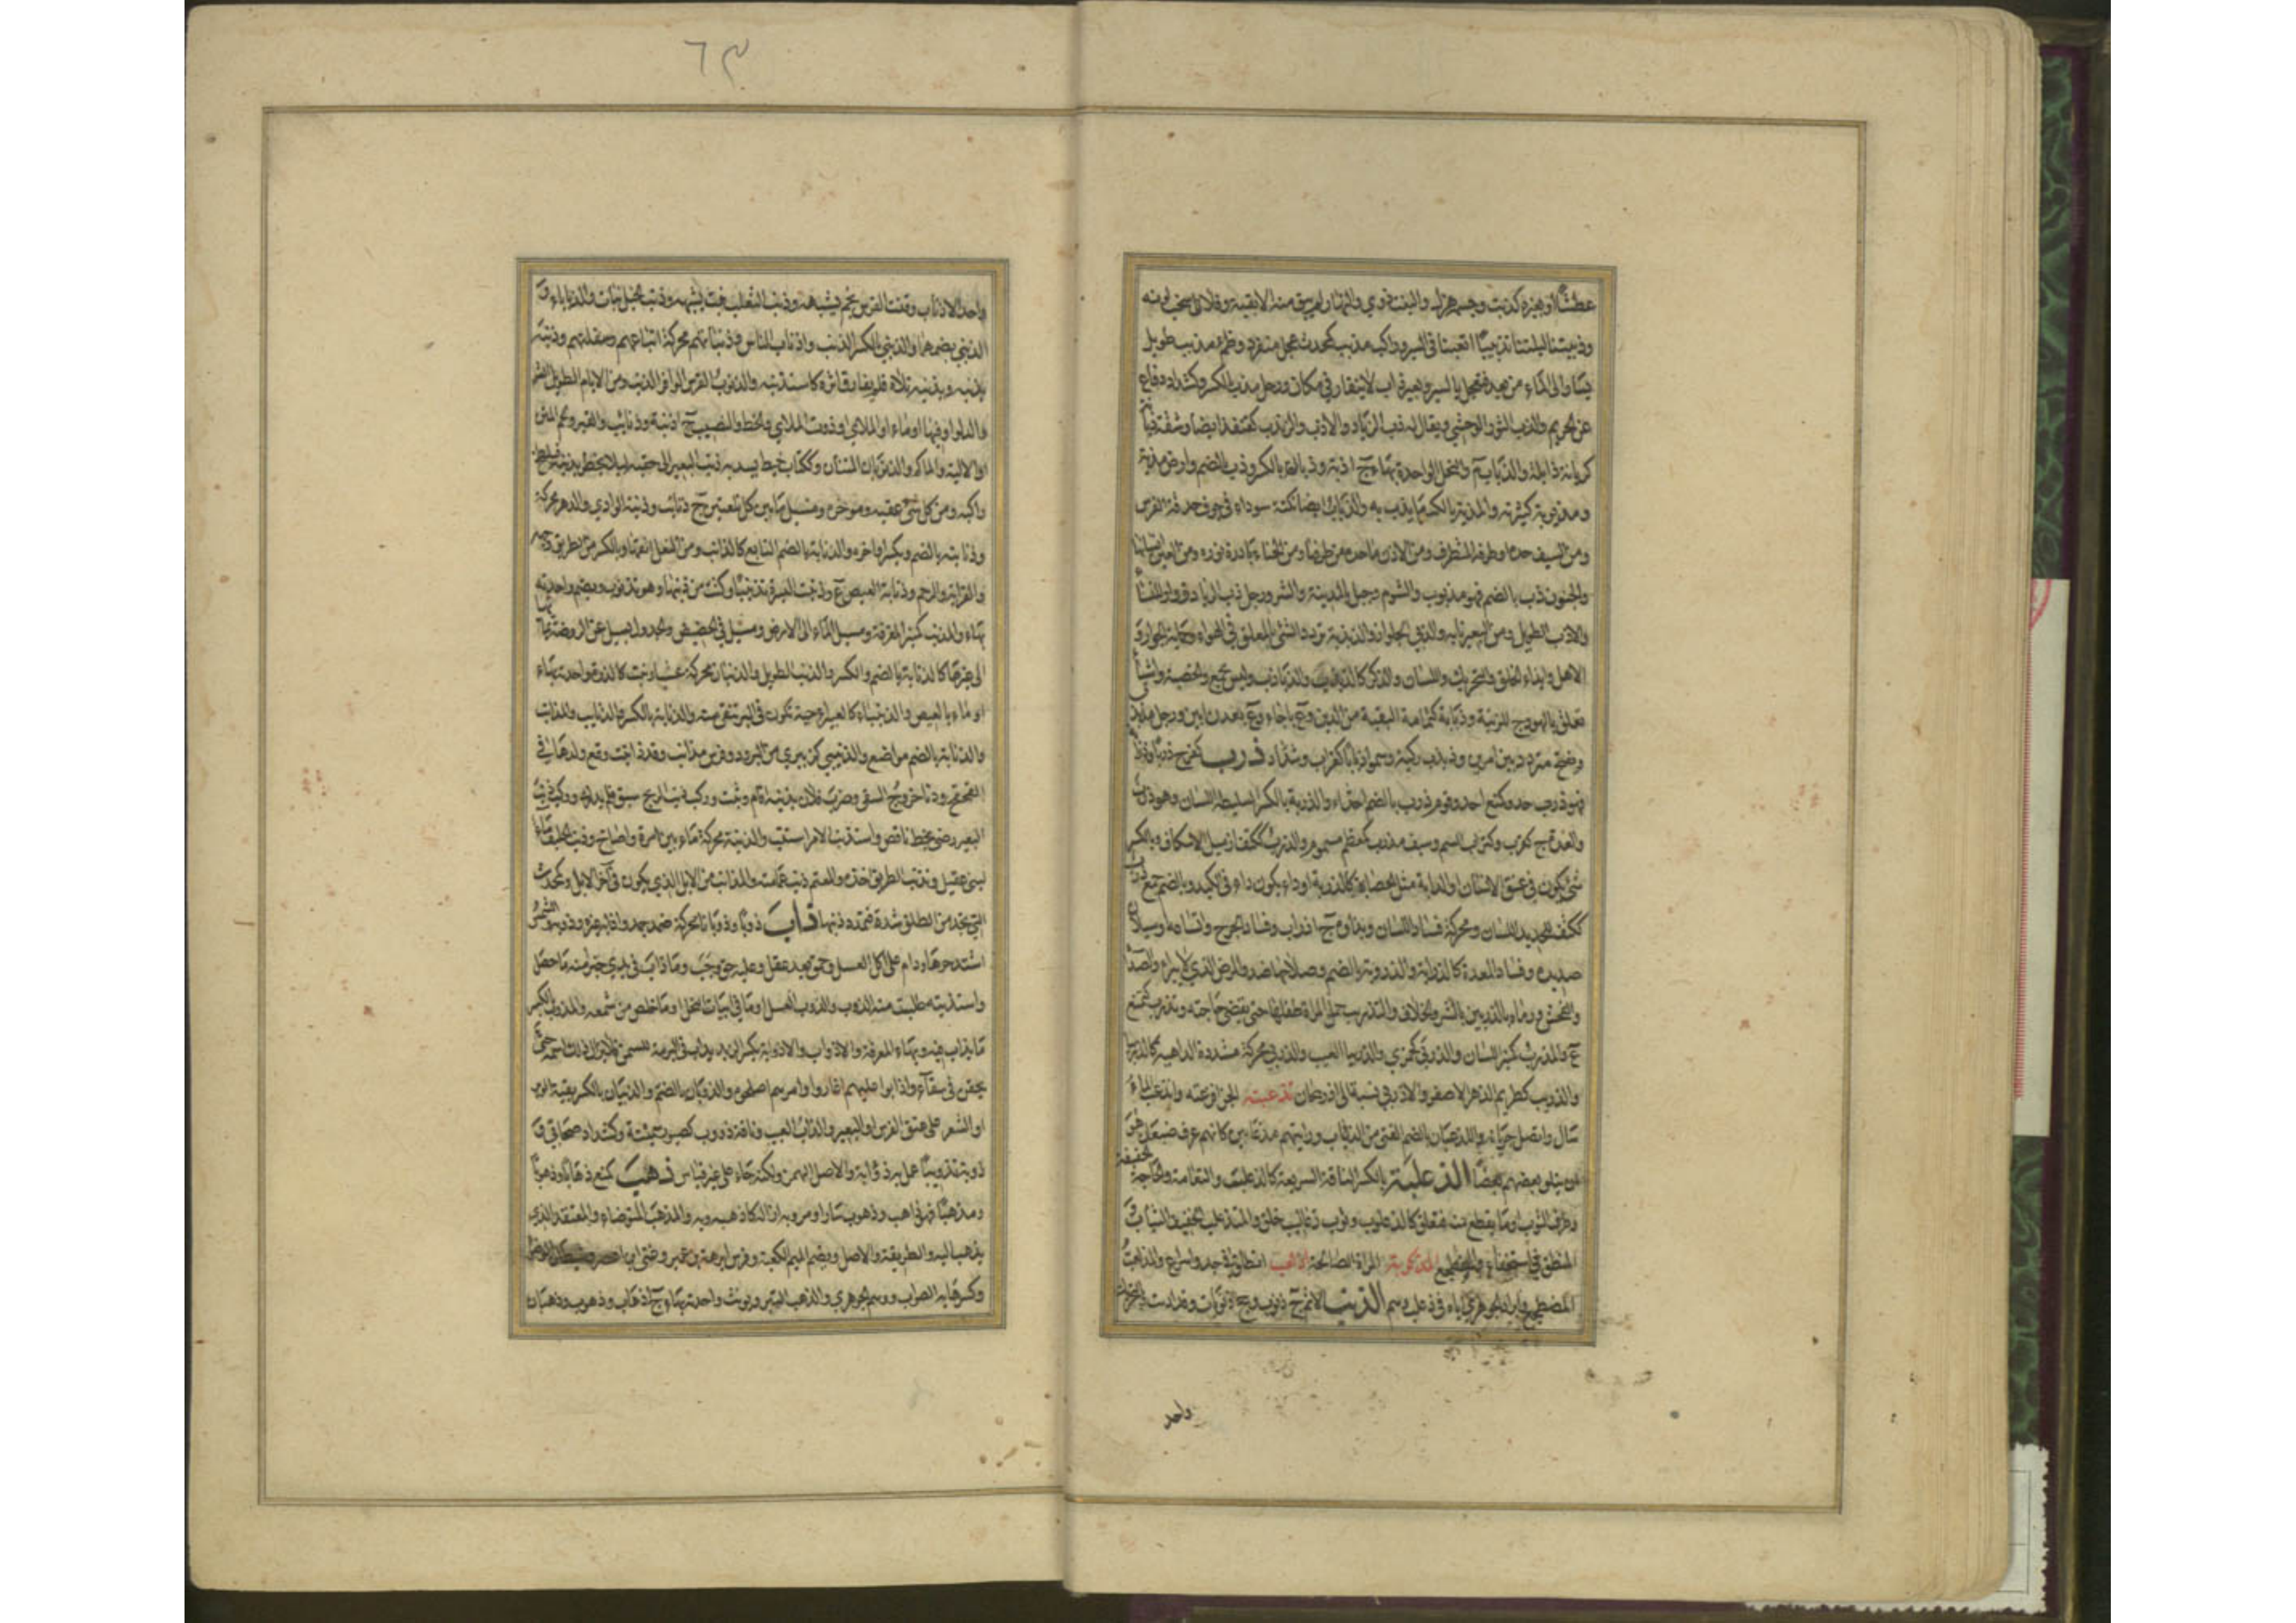 عطشًا او لغيره كذبب وجسمه هزل والنبت ذوي والنهار لم يبق منه الا بقية وفلان شحب لونه
وذببنا ليلتنا تذبيبًا اتعبنا في السير وراكب مذبب كمحدث عجل منفرد وظمء مذبب طويل
يسار الى الماء من بعد فيعجل بالسير وبعير ذاب لا يتقار في مكان ورجل مذب بالكسر وكشداد دفاع
عن الحريم والذب الثور الوحشي ويقال له ذب الرياد والاذب والذنبب كقنفذ ايضا وشفة ذبا
كريانة ذابلة والذباب م والنحل الواحدة بهاء ج اذبة وذبان بالكسر وذب بالضم وارض مذبة
ومذبوبة كثيرته والمذبة بالكسر ما يذب به والذباب ايضا نكتة سوداء في جوف حدقة الفرس
ومن السيف حده او طرفه المتطرف ومن الاذن ما حد من طرفها ومن الحناء بادرة نوره ومن العين انسانها
والجنون ذب بالضم فهو مذبوب والشوم وجبل بالمدينة والشر ورجل ذب الرياد
والاذب الطويل ومن البعير نابه والذبي الجلواز والذبذبة تردد الشيء المعلق في الهواء وحماية الجوار و
الاهل وايذاء الخلق والتحريك واللسان والذكر كالذبذب والذباذب وليس بجمع والخصية واشيا
تعلق بالهودج للزينة وذبابة كثمامة البقية من الدين وع باجاء وع بعدن ابين ورجل مذبذب
ويفتح متردد بين امرين وذبذب ركية وسموا ذبابا كغراب وشداد ذرب كفرح ذربا وذرابة
فهو ذرب حد وكمنع احد وقوم ذرب بالضم احداء والذربة بالكسر السليطة اللسان وهو ذرب
والغدة ج كقرب وكتراب السم وسيف مذرب كمعظم مسموم والذرب ككتف ازميل الاسكاف وبالكسر
شيء يكون في عنق الانسان او الدابة مثل الحصاة كالذربة او داء يكون في الكبد وبالضم جمع ذرب
ككتف للحديد اللسان ومحركة فساد اللسان وبذاؤه ج اذراب وفساد الجرح واتساعه او سيلان
صديده وفساد المعدة كالذرابة والذروبة بالضم وصلاحها ضد والمرض الذي لا يبرأ والصدأ
والفحش ورماه بالذربين بالشر والخلاف والتذريب حمل المراة طفلها حتى يقضي حاجته وتذرب كتمنع
ع والمذرب كمنبر اللسان والذربى كجمزى والذربيا العيب والذربى محركة مشددة الداهية كالذربيا
والذريب كطريم الزهر الاصفر والاذربي نسبة الى اذربيجان تذعبته الجن افزعته وانذعب الماء
سال واتصل جريانه والذعبان بالضم الفتي من الذئاب ورايتهم مذعابين كانهم عرف ضبعان هو
ان يتلو بعضهم بعضا الذعلبة بالكسر الناقة السريعة كالذعلب والنعامة والحاجة الخفيفة
وطرف الثوب وما يقطع منه فتعلق كالذعلوب وثوب ذعاليب خلق والمتذعلب الخفيف الثياب و
المنطلق في استخفاء والمضطجع المذكوبة المراة الصالحة اذلعب انطلق في جد واسرع والمذلعب
المضطجع وايراد الجوهري اياه في ذعلب وهم الذنب الاثم ج ذنوب وجج ذنوبات وقد اذنب وبالتحريك
واحد
٦٣
واحد الاذناب وذنب الفرس نجم يشبهه وذنب الثعلب نبت يشبهه وذنب الخيل نبات والذنابى و
الذنبى بضمهما والذنبى بالكسر الذنب واذناب الناس وذنباتهم محركة اتباعهم وسفلتهم وذنبه
يذنبه ويذنبه تلاه فلم يفارق اثره كاستذنبه والذنوب الفرس الوافر الذنب ومن الايام الطويل الشر
والدلو او فيها ماء او الملاى او دون الملاى والحظ والنصيب ج اذنبة وذنائب والقبر ولحم المتن
او الالية والماكم والذنوبان المتنان وككتاب خيط يشد به ذنب البعير الى حقبه لئلا يخطر بذنبه فيلطخ
راكبه ومن كل شيء عقبه ومؤخره ومسيل ما بين كل تلعتين ج ذنائب وذنبة الوادي والدهر محركة
وذنابته بالضم ويكسر اواخره والذنابة بالضم التابع كالذانب ومن النعل انفها وبالكسر من الطريق وجهه
والقرابة والرحم وذنابة العيص ع وذنبت البسرة تذنيبا وكتت من ذنبها وهو تذنوب ويضم واحدته
بهاء والمذنب كمنبر المغرفة ومسيل الماء الى الارض ومسيل في الحضيض والجدول يسيل عن الروضة بمائها
الى غيرها كالذنابة بالضم والكسر والذنب الطويل والذنبان محركة عشب او نبت كالذرة واحدته بهاء
او ماء بالعيص والذنيباء كالغبيراء حبة تكون في البر تنقى منه والذنابة بالكسر والذنائب والمذانب
والذنابة بالضم مواضع والذنيبي كزبيري من البرود وفرس مذانب وقد ذانبت وقع ولدها في
القحقح ودنا خروج السقي وضرب فلان بذنبه اقام وثبت وركب ذنب الريح سبق فلم يدرك وركب ذنب
البعير رضي بحظ ناقص واستذنب الامر استتب والذنبة محركة ماء بين امرة واضاخ وذنب الحليف ماء
لبني عقيل وتذنب الطريق اخذه والمعتم ذنب عمامته والمذانب من الابل الذي يكون في آخر الابل وكمحدث
التي تجد من الطلق شدة فتمدد ذنبها ذاب ذوبا وذوبانا محركة ضد جمد واذابه غيره وذوبه والشمس
اشتد حرها ودام على اكل العسل وحمق بعد عقل وعليه حق وجب وما ذاب في يدي خير منه ما حصل
واستذبته طلبت منه الذوب والذوب العسل او ما في ابيات النحل او ما خلص من شمعه والمذوب بالكسر
ما يذاب فيه وبهاء المغرفة والاذواب والاذوابة بكسرهما الزبد يذاب في البرمة للسمن فلا يزال ذلك اسمه حتى
يحقن في سقاء واذابوا عليهم اغاروا وامرهم اصلحوه والذوبان بالضم والذيبان بالكسر بقية الوبر
او الشعر على عنق الفرس او البعير والذاب العيب وناقة ذؤوب كصبور سمينة وكشداد صحابي و
ذوبه تذويبا عمل له ذؤابة والاصل الهمز ولكنه جاء على غير قياس ذهب كمنع ذهابا وذهوبا
ومذهبا فهو ذاهب وذهوب سار او مر وبه ازاله كاذهبه وبه والمذهب المتوضأ والمعتقد الذي
يذهب اليه والطريقة والاصل وبضم الميم الكعبة وفرس ابرهة بن عمير وغني ابن اعصر وشيطان الوضوء
وكسر هائه الصواب ووهم الجوهري والذهب التبر ويؤنث واحدته بهاء ج اذهاب وذهوب وذهبان